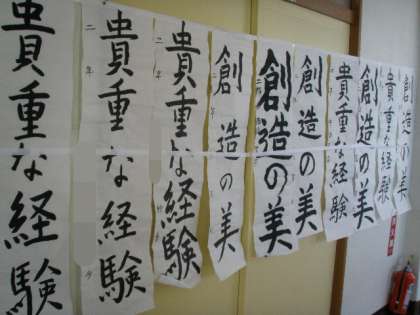 創造の美
貴重な経験
創造の美
貴重な経験
創造の美
創造の美
創造の美
貴重な経験
貴重な経験
二年
貴重な経験